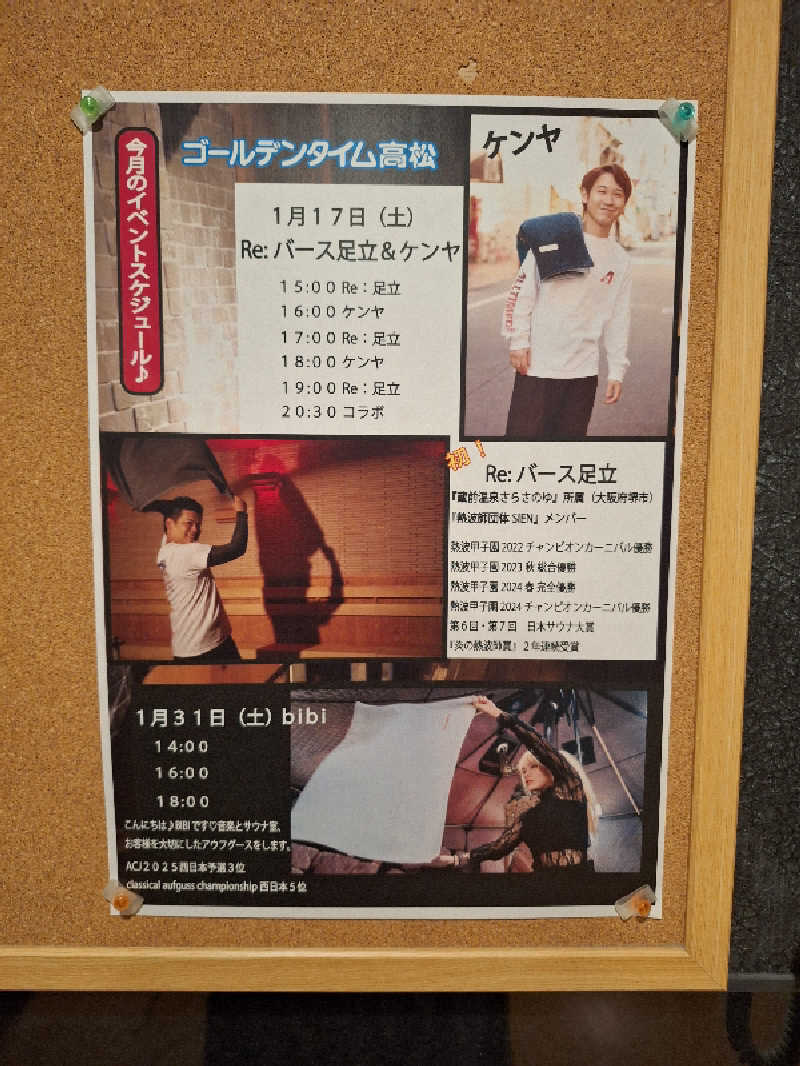 今月のイベントスケジュール♪
ゴールデンタイム高松
ケンヤ
1月17日（土）
Re: バース足立＆ケンヤ
15:00 Re：足立
16:00 ケンヤ
17:00 Re：足立
18:00 ケンヤ
19:00 Re：足立
20:30 コラボ
初！
Re: バース足立
『蔵前温泉さらさのゆ』所属（大阪府堺市）
『熱波師団体 SIEN』メンバー
熱波甲子園 2022 チャンピオンカーニバル優勝
熱波甲子園 2023 秋 総合優勝
熱波甲子園 2024 春 完全優勝
熱波甲子園 2024 チャンピオンカーニバル優勝
第6回・第7回 日本サウナ大賞
『炎の熱波師賞』2年連続受賞
1月31日（土）bibi
14:00
16:00
18:00
こんにちは♪BIBIです♡音楽とサウナ室、
お客様を大切にしたアウフグースをします。
ACJ2025西日本予選3位
classical aufguss championship 西日本5位